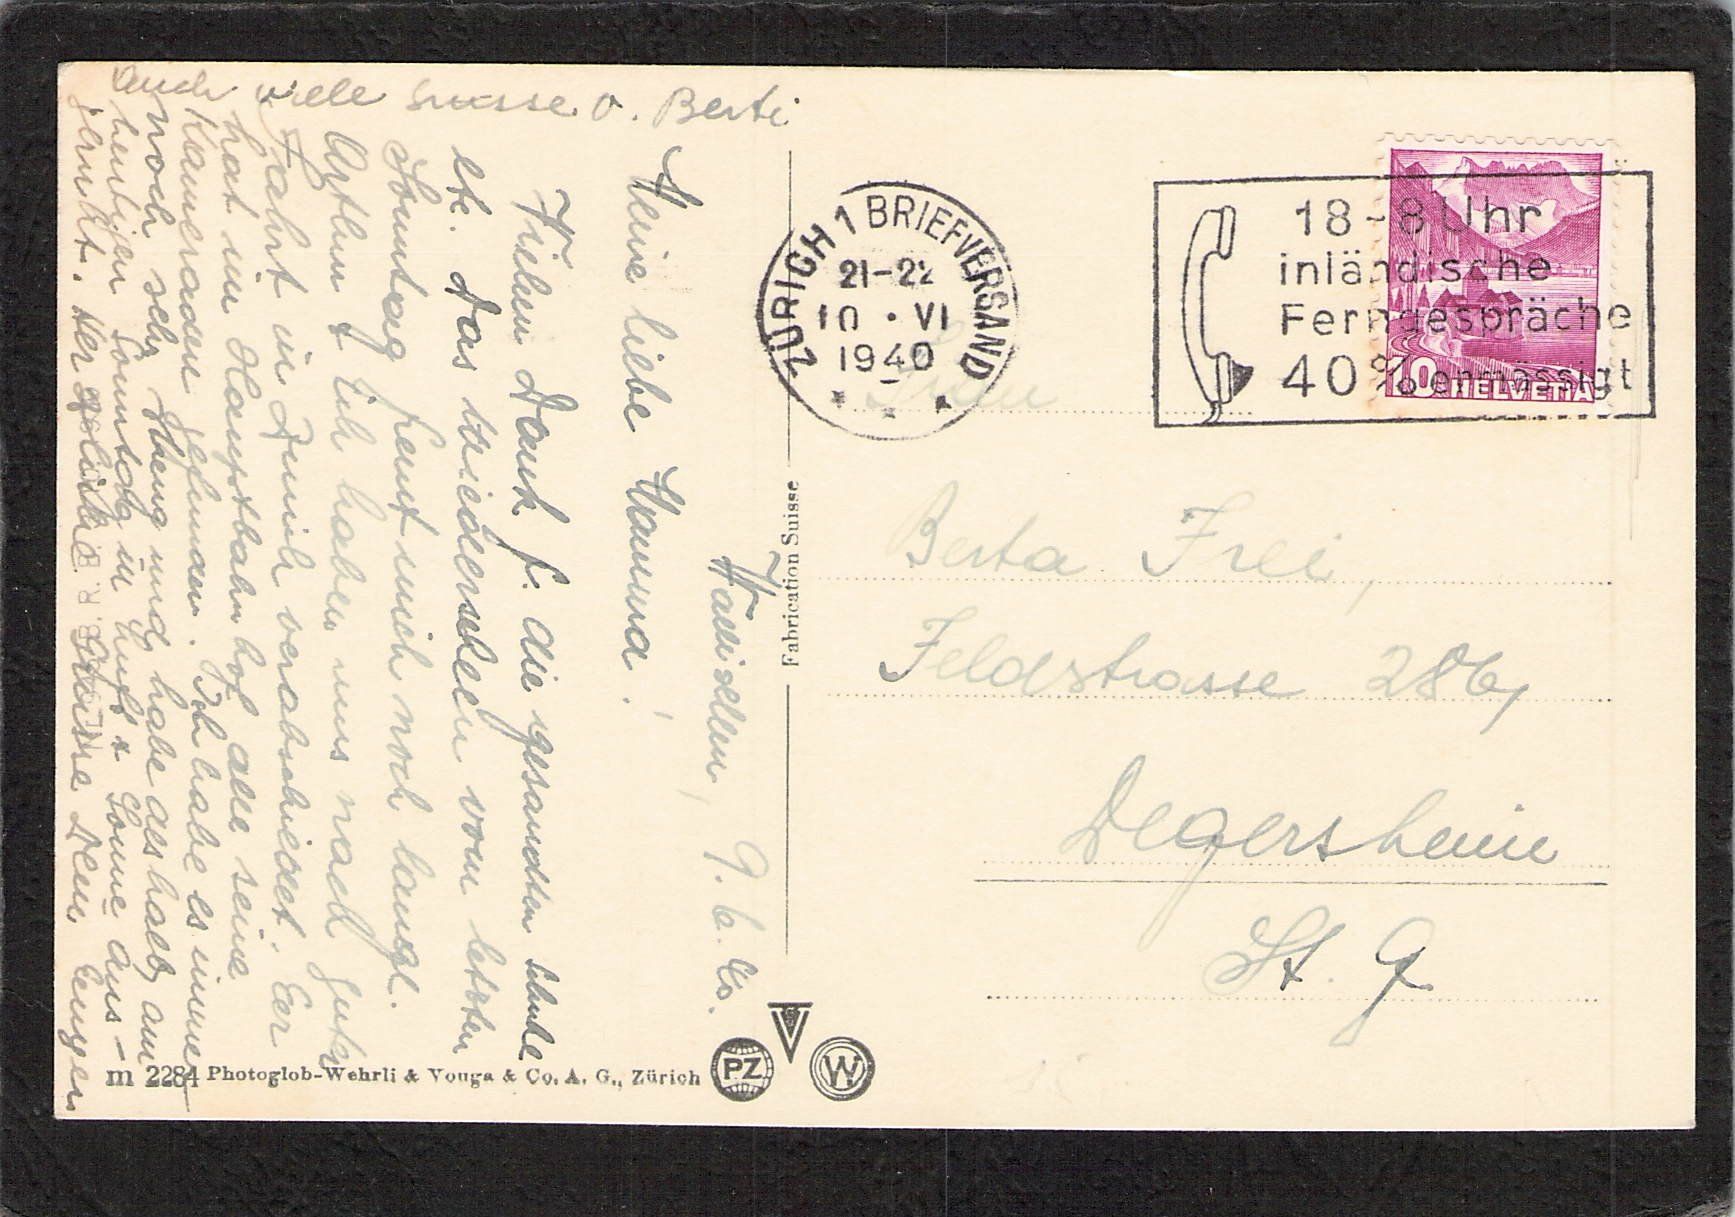 auch viele Grüsse v. Berti
Wallisellen, 9. 6. 40.
Meine liebe Mamma!
Vielen Dank f. die gesandten Schuhe
etc. Das Wiedersehen vom letzten
Sonntag freut mich noch lange.
Arthur & ich haben uns nach guter
Fahrt in Zürich verabschiedet. Er
hat im Hauptbahnhof alle seine
Kameraden getroffen. Ich habe es immer
noch sehr streng und habe deshalb am
heutigen Sonntag in Luft & Sonne aus-
geruht. Herzliche Grüsse Dein Eugen
Fabrication Suisse
m 2284 Photoglob-Wehrli & Vouga & Co. A. G., Zürich
PZ V W
ZÜRICH 1 BRIEFVERSAND
21-22
10 · VI
1940
18-8 Uhr
inländische
Ferngespräche
40% ermässigt
10 HELVETIA
Berta Frei,
Feldstrasse 286,
Degersheim
St. G